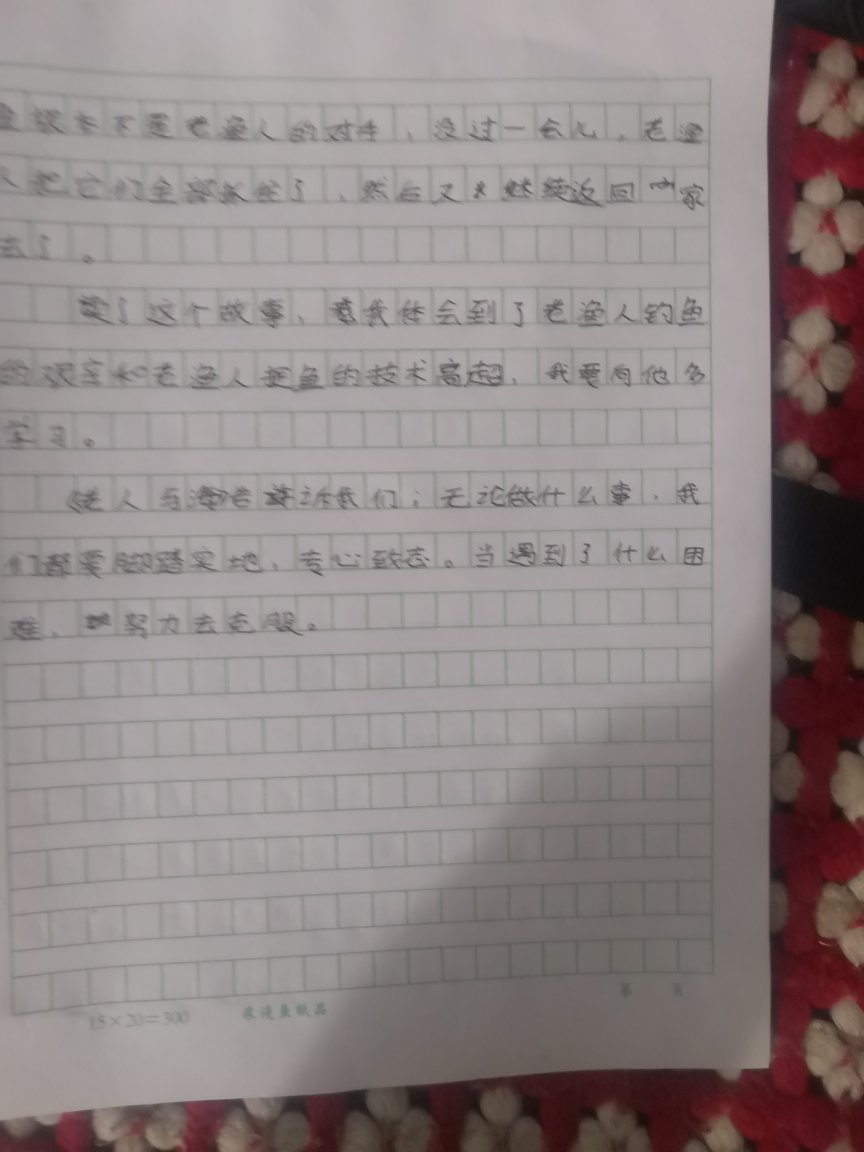 根本不是老渔人的对手，没过一会儿，老渔
人把它们全部抓住了，然后又继续返回家
去了。
读了这个故事，我体会到了老渔人钓鱼
的艰辛和老渔人把鱼的技术高超，我要向他多
学习。
《老人与海》告诉我们：无论做什么事，我
们都要脚踏实地，专心致志。当遇到了什么困
难，努力去克服。
15×20=300 浪漫鱼纸品 第 页